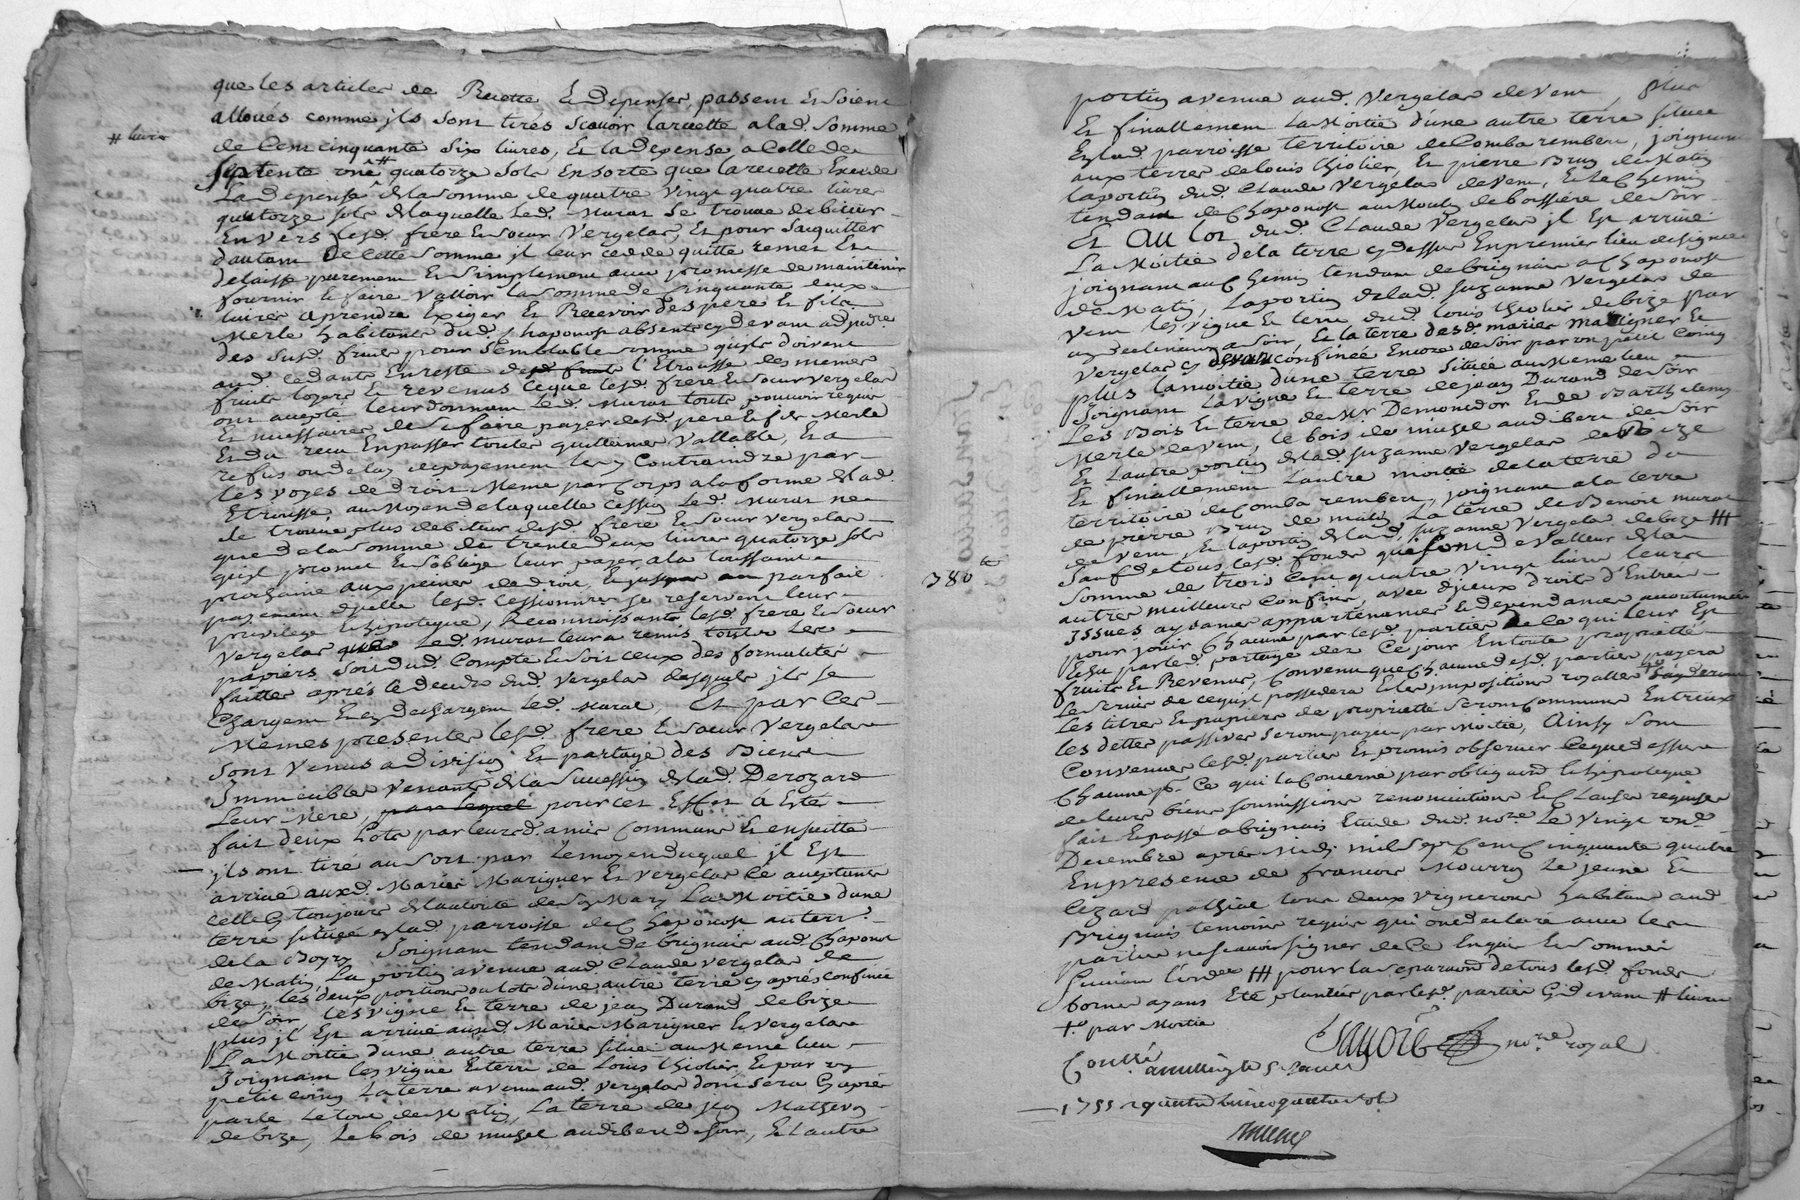 que les articles de Recette & depenses passent & soient
alloués comme jls sont tirés scavoir la recette a lad. somme
# livres
de Cent cinquante six livres, Et la depense a Celle de
Septente une # quatorze sols En sorte que la recette Exede
La depense de la somme de quatre vingt quatre livres
quatorze sols de laquelle led. Murat se trouve debiteur
Envers lesd. frere & soeur Vergelas, Et pour s'acquitter
d'autant de Cette somme jl leur cedde quitte remet Et
delaisse purement & simplement avec promesse de maintenir
fournir & faire valloir la somme de Cinquante deux
livres a prendre Exiger Et Recevoir des pere Et fils
Merle habitants dud. Chaponost absents cy devant adjudre.
des susd. fruits pour semblable somme quils doivent
aud. cedant En reste de l'Etrousse des memes
fruits loyers & revenus Ce que lesd. frere & soeur Vergelas
ont accepté leur donnant led. Murat tout pouvoir requis
Et necessaires de se faire payer desd. pere & fils Merle
Et du recu En passer toutes quittances vallable, Et a
refus ou delay de payement les y Contraindre par
les voyes de droit Meme par Corps a la forme de lad.
Etrousse, au Moyen de laquelle cession led. Murat ne
se trouve plus debiteur desd. frere & soeur Vergelas
que de la somme de trente deux livres quatorze sols
quil promet & s'oblige leur payer a la toussaint
prochaine aux peines de droit, & jusques au parfait
payement d'jcelle lesd. Cessionnaires se reservent leur
privilege & hipoteque, Reconnoissants lesd. frere & soeur
Vergelas que led. Murat leur a remis toutes les
papiers soit dud. Compte & soit ceux des formalités
faittes aprés le decedz dud. Vergelas desquels jls se
Chargent & en dechargent led. Murat, Et par Ces
Memes presentes lesd. frere & soeur Vergelas
sont venus a division Et partage des Biens
Immeubles venants de la succession de lad. Derozard
Leur Mere, par lequel pour cet Effet á Esté
fait deux Lots par leurs d. amis Communs Et ensuitte
jls ont tiré au sort par le moyen duquel jl Est
arrivé auxd. Mariés Marigner Et Vergelas Ce acceptants
celle cy toujours de l'autorité de son Mary La Moitié d'une
terre située en lad. parroisse de Chaponost au terr.
de la Joignant tendant de brignais aud. Chaponost
de Matin, La portion avenue aud. Claude Vergelas de
bize, les deux portions ou lots d'une autre terre cy aprés confinée
de soir les vigne Et terre de jean Durand de bize
plus jl Est arrivé auxd. Mariés Marigner & Vergelas
La Moitié d'une autre terre située au Meme lieu
Joignant les vigne & terre de Louis thiolier, & par un
petit coing La terre avenue aud. Vergelas dont sera cy aprés
parlé Le tout de Matin, La terre de jean Mathevon
de bize, Le bois de musel audibert de soir, & L'autre
portion avenue aud. Vergelas de vent, plus
Et finallement La Moitié d'une autre terre située
En lad. parroisse territoire de Comba rembert, joignant
aux terres de louis thiolier, Et pierre Brun de Matin
la portion dud. Claude Vergelas de vent, & Le Chemin
tendant de Chaponost au Moulin de bassere de soir
Et AU lot dud. Claude Vergelas jl Est arrivé
La Moitié de la terre cy dessus En premier lieu designée
joignant au Chemin tendant de brignais a Chaponost
de Matin, La portion de lad. Suzanne Vergelas de
vent les vigne & terre dud. louis thiolier de bize par
un declinant a soir, & la terre desd. mariés Marigner Et
Vergelas cy devant confinée Encore de soir par un petit Coing
plus la moitié d'une terre située au Meme lieu
Joignant La vigne Et terre de jean Durand de soir
Les Bois Et terre de Mr Demoncdor Et de Barthelemy
Merle de vent, le bois de musel audibert de soir
Et L'autre portion de lad. Suzanne Vergelas de Bize
Et finallement L'autre moitié de la terre du
territoire de Comba rembert, joignant a la terre
de pierre Brun de matin La terre de Benoit murat
de vent, Et la portion de lad. Suzanne Vergelas de bize ///
Sauf de tous lesd. fonds que sont de Valleur de la
380 #
Somme de trois Cent quatre vingt livres leurs
autres meilleurs Confins, avec d'jceux droits d'Entrées
jssues aysances appartenances & dependances accoutumées
pour jouir Chacune par lesd. parties de Ce qui leur Est
Echu par led. partage dez Ce jour En toute proprieté
fruits Et Revenus, Convenu que Chacune desd. parties payera
Le servis de ce quil possedera Et les jmpositions royalles
Les titres Et papiers de proprieté seront Communs Entr'eux
les dettes passives seront payées par Moitié, Ainsy sont
Convenues lesd. parties Et promis observer Ce que dessus
Chacune p. Ce qui la Concerne par obligaon & hipoteque
de leurs biens soumissions renonciations & Clauses requises
fait & passé a brignais Etude dud. nore. Le vingt un.
Decembre aprés Midy mil sept Cent Cinquante quatre
En presence de francois Mourron Le jeune Et
Cezard pathiat tous deux vignerons habitants aud.
Brignais temoins requis qui ont declaré avec les
parties ne scavoir signer de Ce Enquis & sommés
Suivant l'orde. /// pour la separaon de tous lesd. fonds
bornes ayans Eté plantées par lesd. parties cy devant # livres
+. par Moitié
nore royal
Contlé
1755